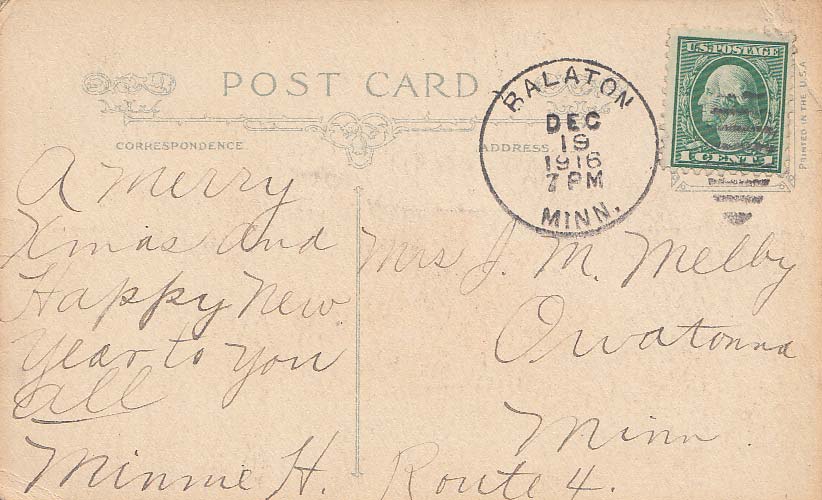 POST CARD
CORRESPONDENCE
ADDRESS
BALATON
DEC
19
1916
7 PM
MINN.
U.S. POSTAGE
1 CENT 1
PRINTED IN THE U.S.A
A Merry
Xmas and
Happy New
Year to you
all
Minnie H.
Mrs J. M. Melby
Owatonna
Minn
Route 4.